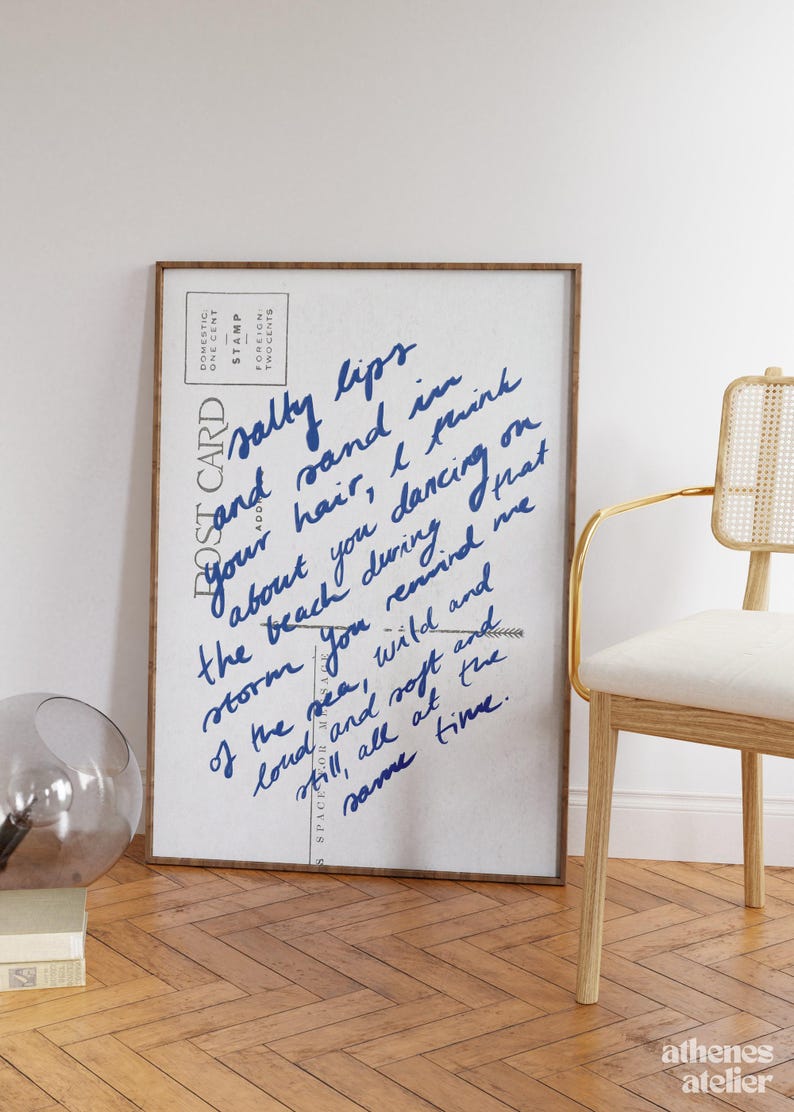 DOMESTIC:
ONE CENT
STAMP
FOREIGN:
TWO CENTS
POST CARD
salty lips
and sand in
your hair, I think
about you dancing on
the beach during that
storm you remind me
of the sea, wild and
loud and soft and
still, all at the
same time.
S SPACE FOR MESSAGE
athenes
atelier